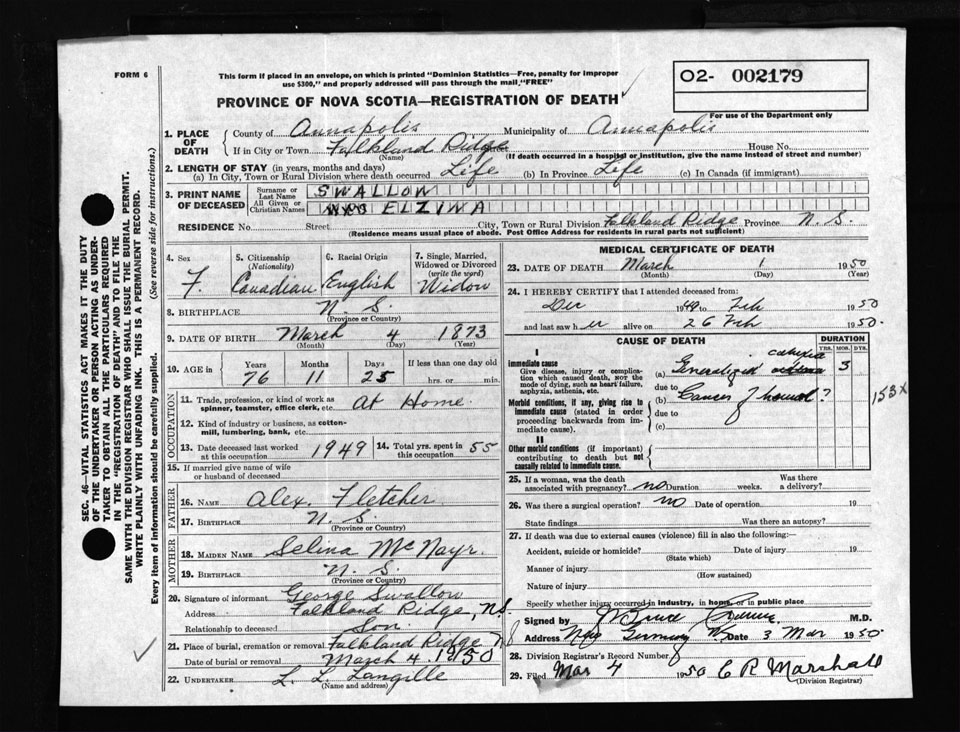 FORM 6
This form if placed in an envelope, on which is printed "Dominion Statistics—Free, penalty for improper
use $300," and properly addressed will pass through the mail "FREE"
O2- 002179
For use of the Department only
PROVINCE OF NOVA SCOTIA—REGISTRATION OF DEATH
1. PLACE OF DEATH
County of Annapolis Municipality of Annapolis
If in City or Town Falkland Ridge Street House No.
(Name) (If death occurred in a hospital or institution, give the name instead of street and number)
2. LENGTH OF STAY (in years, months and days)
(a) In City, Town or Rural Division where death occurred Life (b) In Province Life (c) In Canada (if immigrant)
3. PRINT NAME OF DECEASED
Surname or Last Name SWALLOW
All Given or Christian Names MRS ELZIWA
RESIDENCE No. Street City, Town or Rural Division Falkland Ridge Province N. S.
(Residence means usual place of abode. Post Office Address for residents in rural parts not sufficient)
SEC. 46—VITAL STATISTICS ACT MAKES IT THE DUTY
OF THE UNDERTAKER OR PERSON ACTING AS UNDER-
TAKER TO OBTAIN ALL THE PARTICULARS REQUIRED
IN THE "REGISTRATION OF DEATH" AND TO FILE THE
SAME WITH THE DIVISION REGISTRAR WHO SHALL ISSUE THE BURIAL PERMIT.
WRITE PLAINLY WITH UNFADING INK. THIS IS A PERMANENT RECORD.
Every item of information should be carefully supplied. (See reverse side for instructions.)
4. Sex F.
5. Citizenship (Nationality) Canadian
6. Racial Origin English
7. Single, Married, Widowed or Divorced (write the word) Widow
8. BIRTHPLACE N. S.
(Province or Country)
9. DATE OF BIRTH March 4 1873
(Month) (Day) (Year)
10. AGE in Years 76 Months 11 Days 25 If less than one day old hrs. or min.
OCCUPATION
11. Trade, profession, or kind of work as
spinner, teamster, office clerk, etc. At Home
12. Kind of industry or business, as cotton-
mill, lumbering, bank, etc.
13. Date deceased last worked at this occupation 1949
14. Total yrs. spent in this occupation 55
15. If married give name of wife
or husband of deceased
FATHER
16. NAME Alex Fletcher
17. BIRTHPLACE N. S.
(Province or Country)
MOTHER
18. MAIDEN NAME Selina McNayr.
19. BIRTHPLACE N. S.
(Province or Country)
20. Signature of informant George Swallow
Address Falkland Ridge, NS.
Relationship to deceased Son.
21. Place of burial, cremation or removal Falkland Ridge N
Date of burial or removal March 4. 1950
22. UNDERTAKER L. L. Langille
(Name and address)
MEDICAL CERTIFICATE OF DEATH
23. DATE OF DEATH March 1 1950
(Month) (Day) (Year)
24. I HEREBY CERTIFY that I attended deceased from:
Dec 1949 to Feb 1950
and last saw her alive on 26 Feb 1950.
CAUSE OF DEATH
DURATION
YRS. MOS. DYS.
I
Immediate cause
Give disease, injury or complica-
tion which caused death, nor the
mode of dying, such as heart failure,
asphyxia, asthenia, etc.
(a) Generalized cachexia 3
due to
(b) Cancer of bowel ?
153X
Morbid conditions, if any, giving rise to
immediate cause (stated in order
proceeding backwards from im-
mediate cause).
due to
(c)
II
Other morbid conditions (if important)
contributing to death but not
causally related to immediate cause.
25. If a woman, was the death
associated with pregnancy? no Duration weeks. Was there a delivery?
26. Was there a surgical operation? no Date of operation 19
State findings Was there an autopsy?
27. If death was due to external causes (violence) fill in also the following:—
Accident, suicide or homicide? Date of injury 19
(State which)
Manner of injury
(How sustained)
Nature of injury
Specify whether injury occurred in industry, in home, or in public place
Signed by M.D.
Address New Germany NS Date 3 Mar 1950.
28. Division Registrar's Record Number
29. Filed Mar 4 1950 C R Marshall
(Division Registrar)